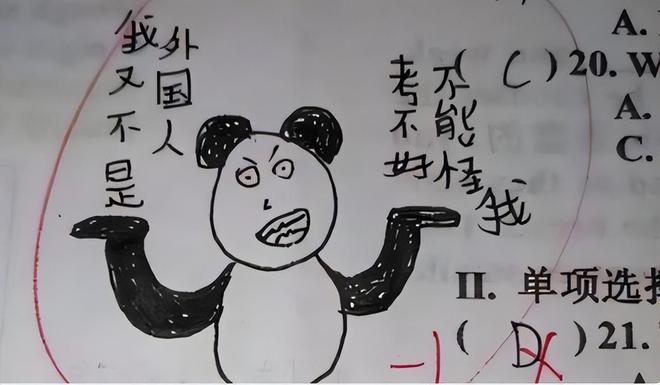 我又不是
外国人
考不好
不能怪我
A.
( C )20. W
A.
C.
II. 单项选择
-1
( D )21.